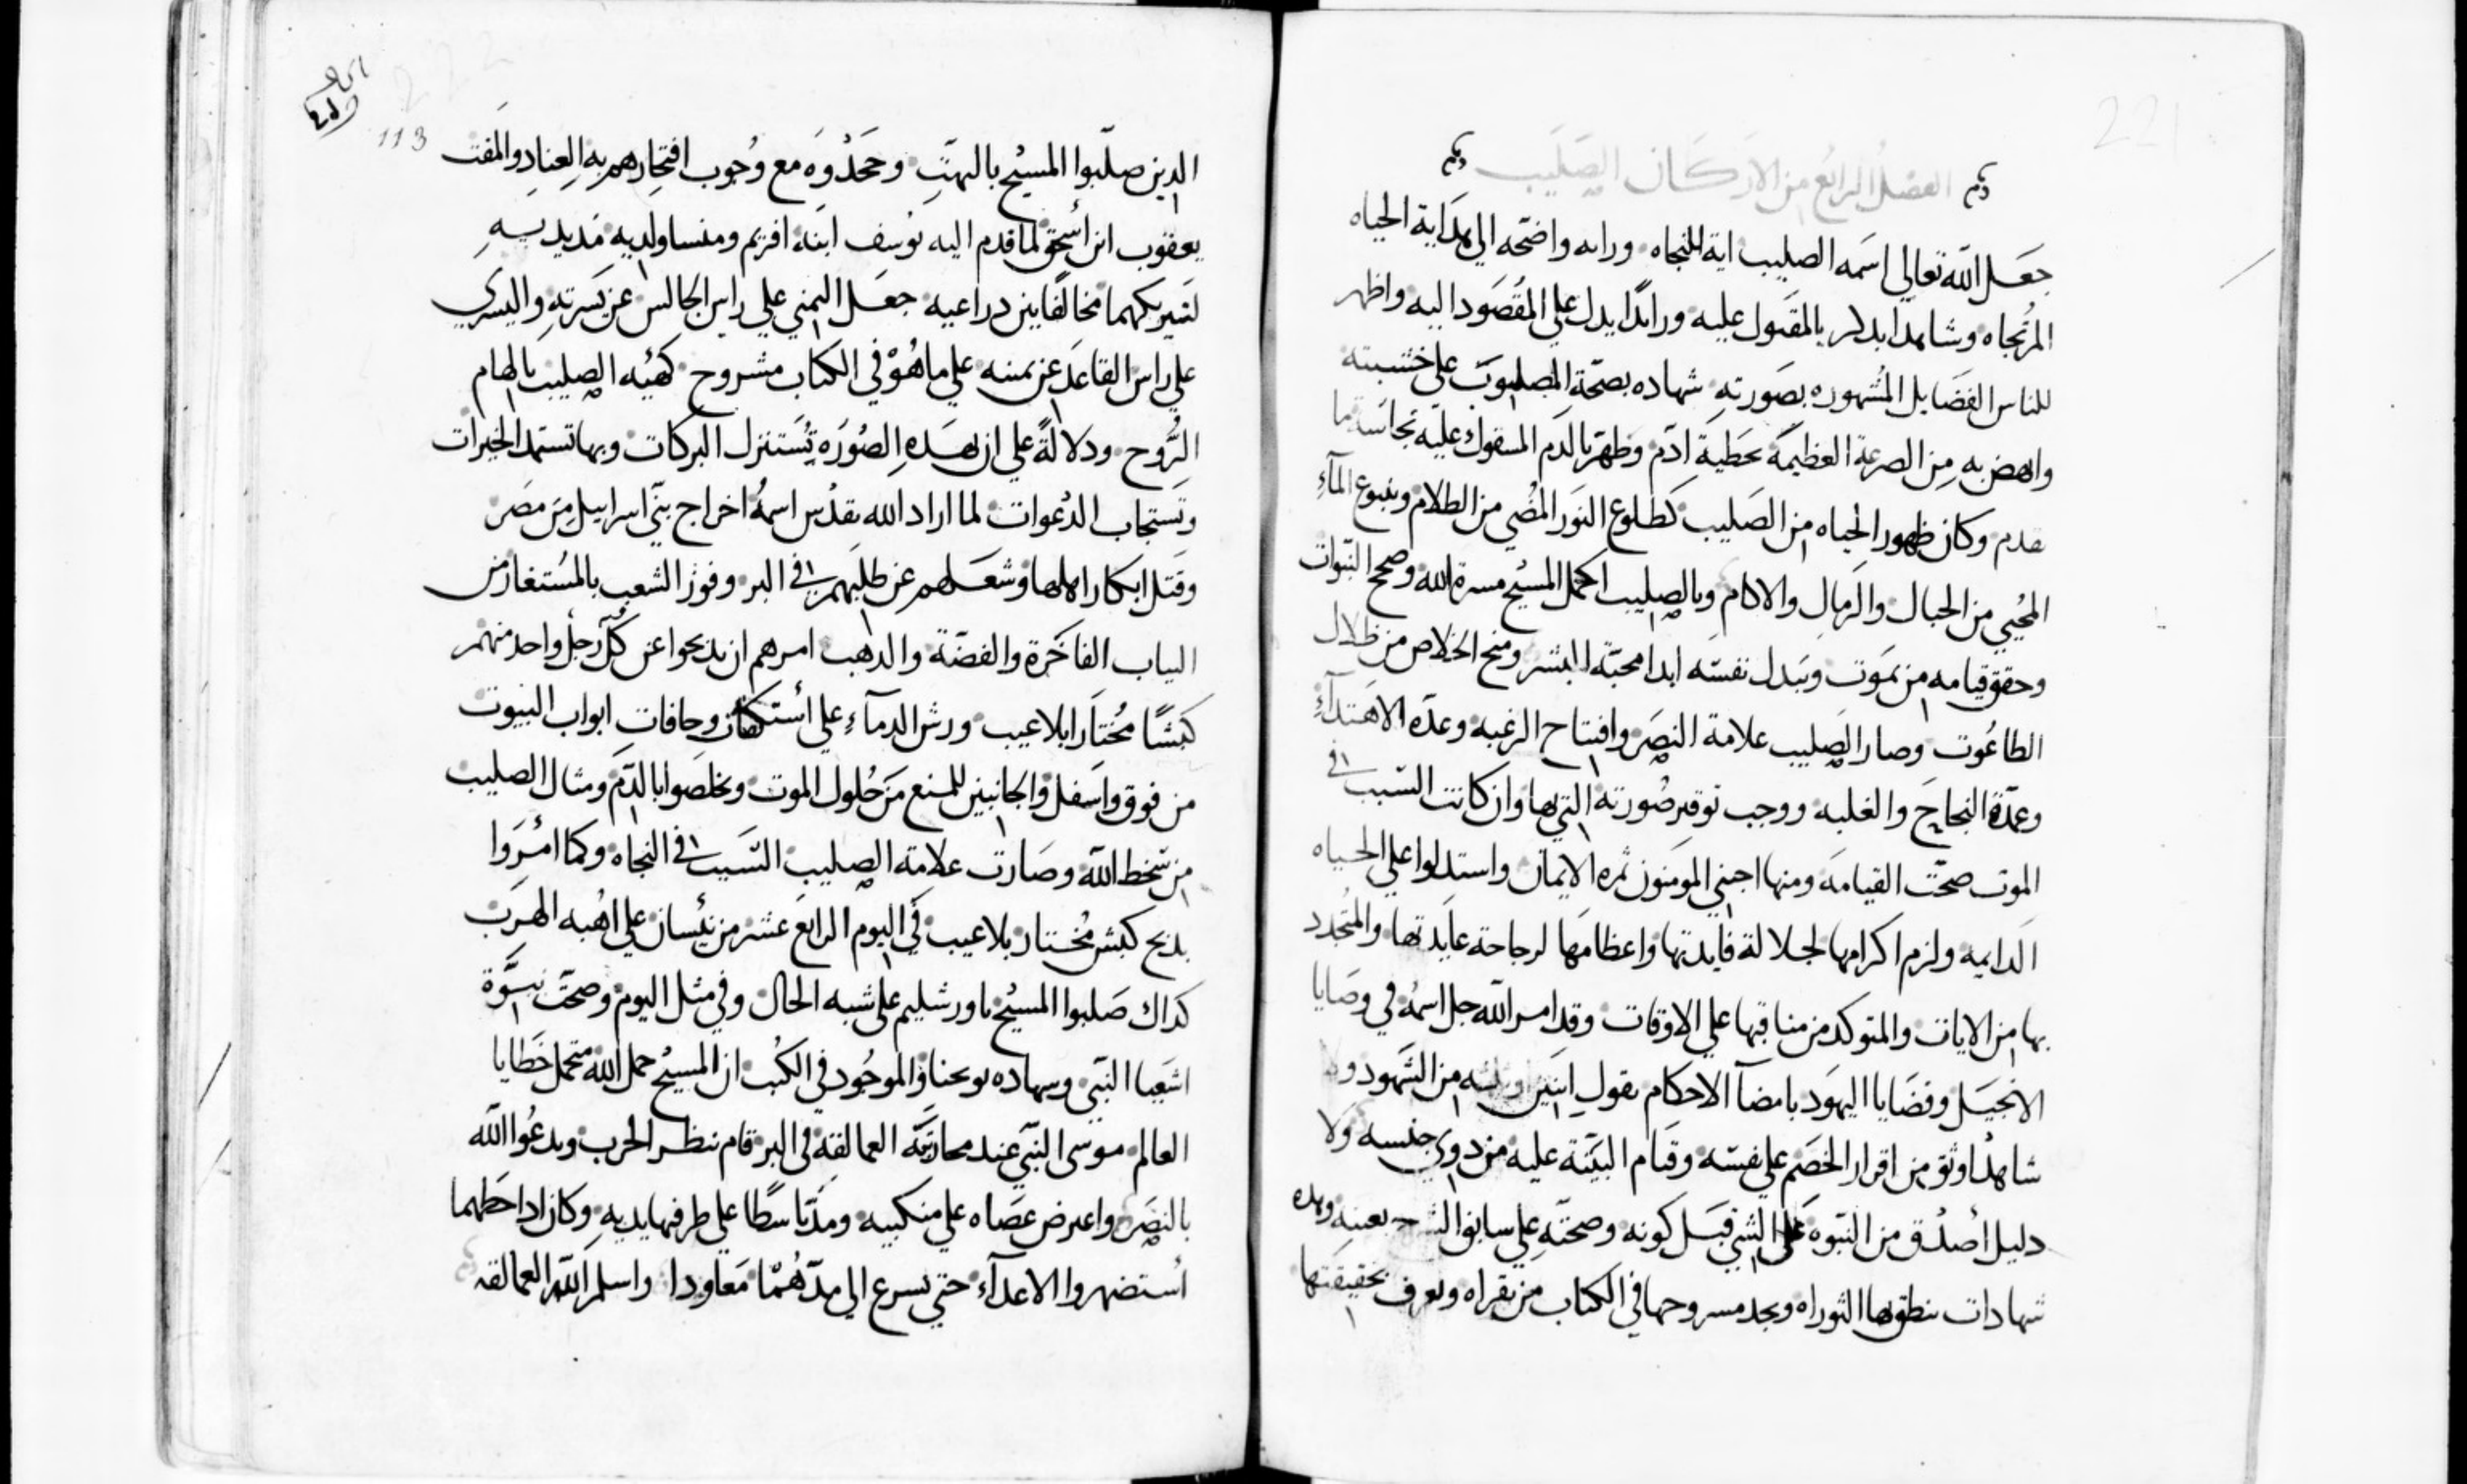 221
الفصل الرابع من الاركان الصليب
جعل الله تعالي اسمه الصليب اية للنجاه ورايه واضحه الي هداية الحياه
المرتجاه وشاهدا يدكر بالمقبول عليه ورايدا يدل علي المقصود اليه واظهر
للناس الفضايل المشهوره بصورته شهاده بصحة المصلوب علي خشبته
وانهض به من الصرعة العظيمة بخطية ادم وطهر بالدم المسفوك عليه نجاسة ما
تقدم وكان ظهور الحياه من الصليب كطلوع النور المضي من الظلام وينبوع المآء
المحيي من الجبال والرمال والاكام وبالصليب اكمل المسيح مسرة الله وصحح النبوات
وحقق قيامه من يموت ويبدل نفسه ابدا محبة البشر ومنح الخلاص من ظلال
الطاغوت وصار الصليب علامة النصر وافتتاح الرغبه وعدة الاهتدآء
وعمدة النجاح والغلبه ووجب توقير صورته التي بها وان كانت السبب في
الموت صحت القيامه ومنها اجتني المومنون ثمرة الايمان واستدلوا علي الحياه
الدايمه ولزم اكرامها لجلالة فايدتها واعظامها لرجاحة عايدتها والمتجدد
بها من الايات والمتوكد من مناقبها علي الاوقات وقد امر الله جل اسمه في وصايا
الانجيل وقضايا اليهود بامضآ الاحكام بقول اثنين او ثلثه من الشهود ولا
شاهدا اوثق من اقرار الخصم علي نفسه وقيام البينة عليه من دوي جنسه ولا
دليل اصدق من النبوه علي الشي قبل كونه وصحته علي سابق الشرح بعينه وهده
شهادات ينطق بها التوراه ويجد مسروحها في الكتاب من يقراه ويعرف بحقيقتها
222
113
الدين صلبوا المسيح بالبهت وجحدوه مع وجوب افتخارهم به العناد والمقت
يعقوب ابن اسحق لما قدم اليه يوسف ابنه افريم ومنسا ولديه مد يديه
لتبريكهما مخالفا بين دراعيه جعل اليمني علي راس الجالس عن يسرته واليسري
علي راس القاعد عن يمنه علي ما هو في الكتاب مشروح كهية الصليب بالهام
الروح ودلالة علي ان بهده الصوره تستنزل البركات وبها تستمد الخيرات
وتستجاب الدعوات لما اراد الله تقدس اسمه اخراج بني اسراييل من مصر
وقتل ابكار اهلها وشغلهم عن طلبهم في البر وفوز الشعب بالمستغاز من
الياب الفاخرة والفضة والدهب امرهم ان يدبحوا عن كل رجل واحد منهم
كبشا مختارا بلا عيب ورش الدمآء علي استكفات وحافات ابواب البيوت
من فوق واسفل والجانبين للمنع من حلول الموت وتخلصوا بالدم ومثال الصليب
من سخط الله وصارت علامة الصليب السبب في النجاه وكما امروا
بدبح كبش مختار بلا عيب في اليوم الرابع عشر من نيسان علي اهبه الهرب
كداك صلبوا المسيح باورشليم علي شبه الحال وفي مثل اليوم وصحت نبوة
اشعيا النبي وسهاده يوحنا والموجود في الكتب ان المسيح حمل الله متحمل خطايا
العالم موسي النبي عند محاربة العمالقة في البر قام ينظر الحرب ويدعوا الله
بالنصر واعرض عصاه علي منكبيه ومد باسطا علي طرفيها يديه وكان ادا حطهما
استضهروا الاعدآء حتي يسرع الي مدهما معاودا واسلم الله العمالقه